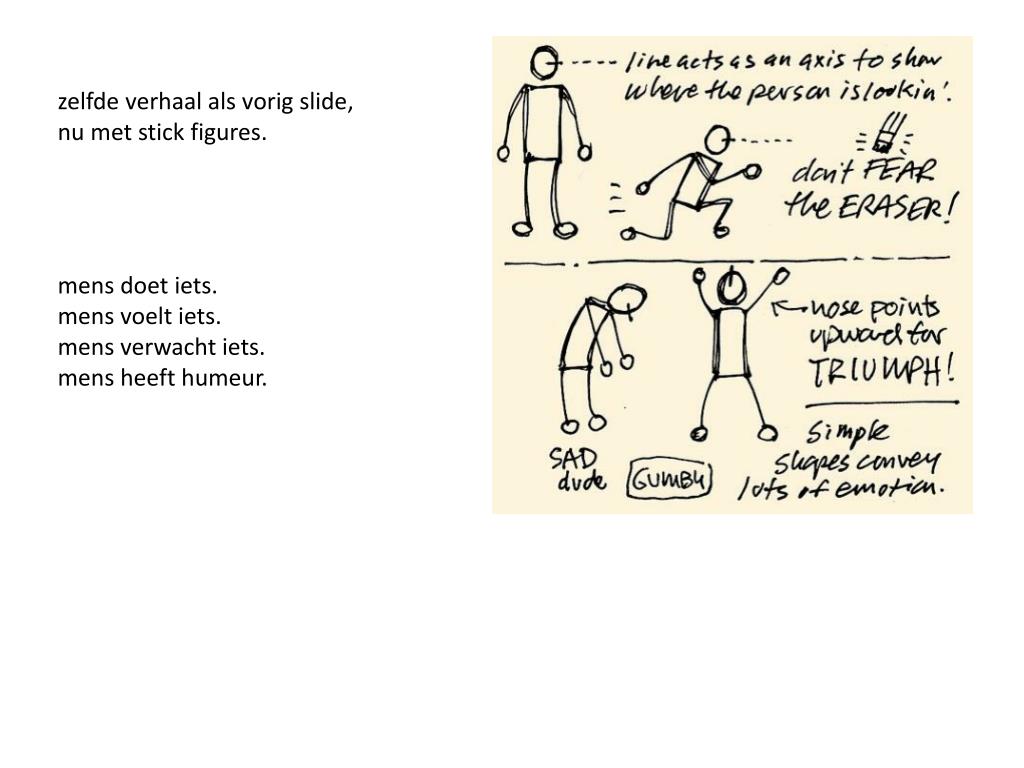 zelfde verhaal als vorig slide,
nu met stick figures.
mens doet iets.
mens voelt iets.
mens verwacht iets.
mens heeft humeur.
line acts as an axis to show
where the person is lookin'.
don't FEAR
the ERASER!
nose points
upward for
TRIUMPH!
SAD
dude
GUMBY
simple
shapes convey
lots of emotion.